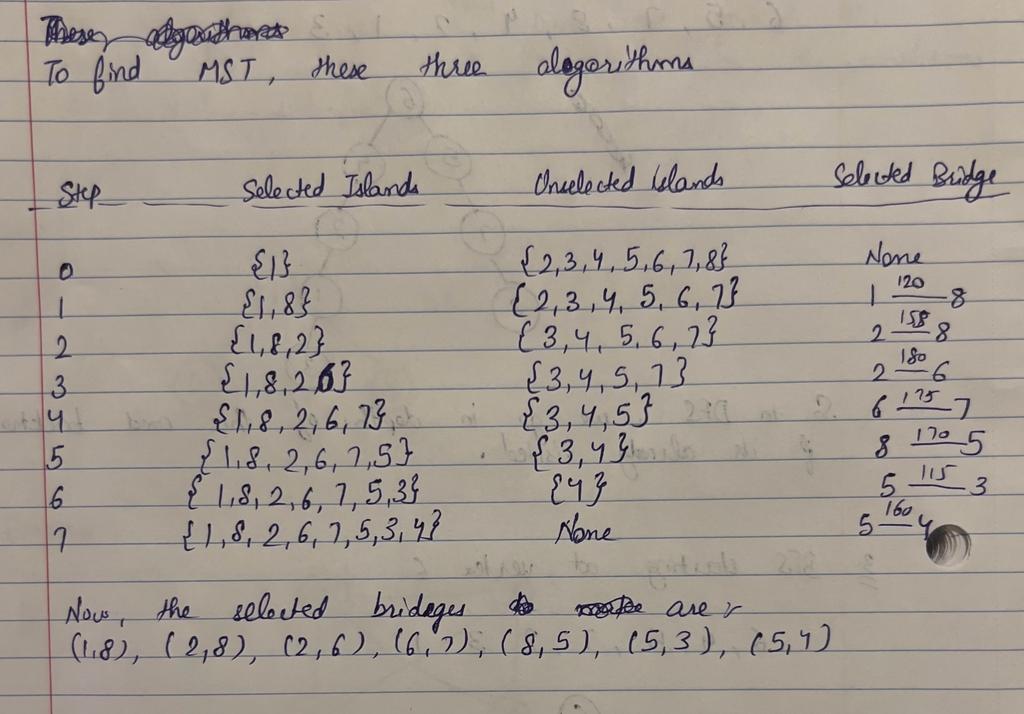 These algorithms
To find MST, these three alogorithms
Step Selected Islands Unselected Islands Selected Bridge
0 {1} {2,3,4,5,6,7,8} None
1 {1,8} {2,3,4,5,6,7} 1 120 8
2 {1,8,2} {3,4,5,6,7} 2 158 8
3 {1,8,2 6} {3,4,5,7} 2 180 6
4 {1,8,2,6,7} {3,4,5} 6 175 7
5 {1,8,2,6,7,5} {3,4} 8 170 5
6 {1,8,2,6,7,5,3} {4} 5 115 3
7 {1,8,2,6,7,5,3,4} None 5 160 4
Now, the selected bridages are
(1,8), (2,8), (2,6), (6,7), (8,5), (5,3), (5,4)